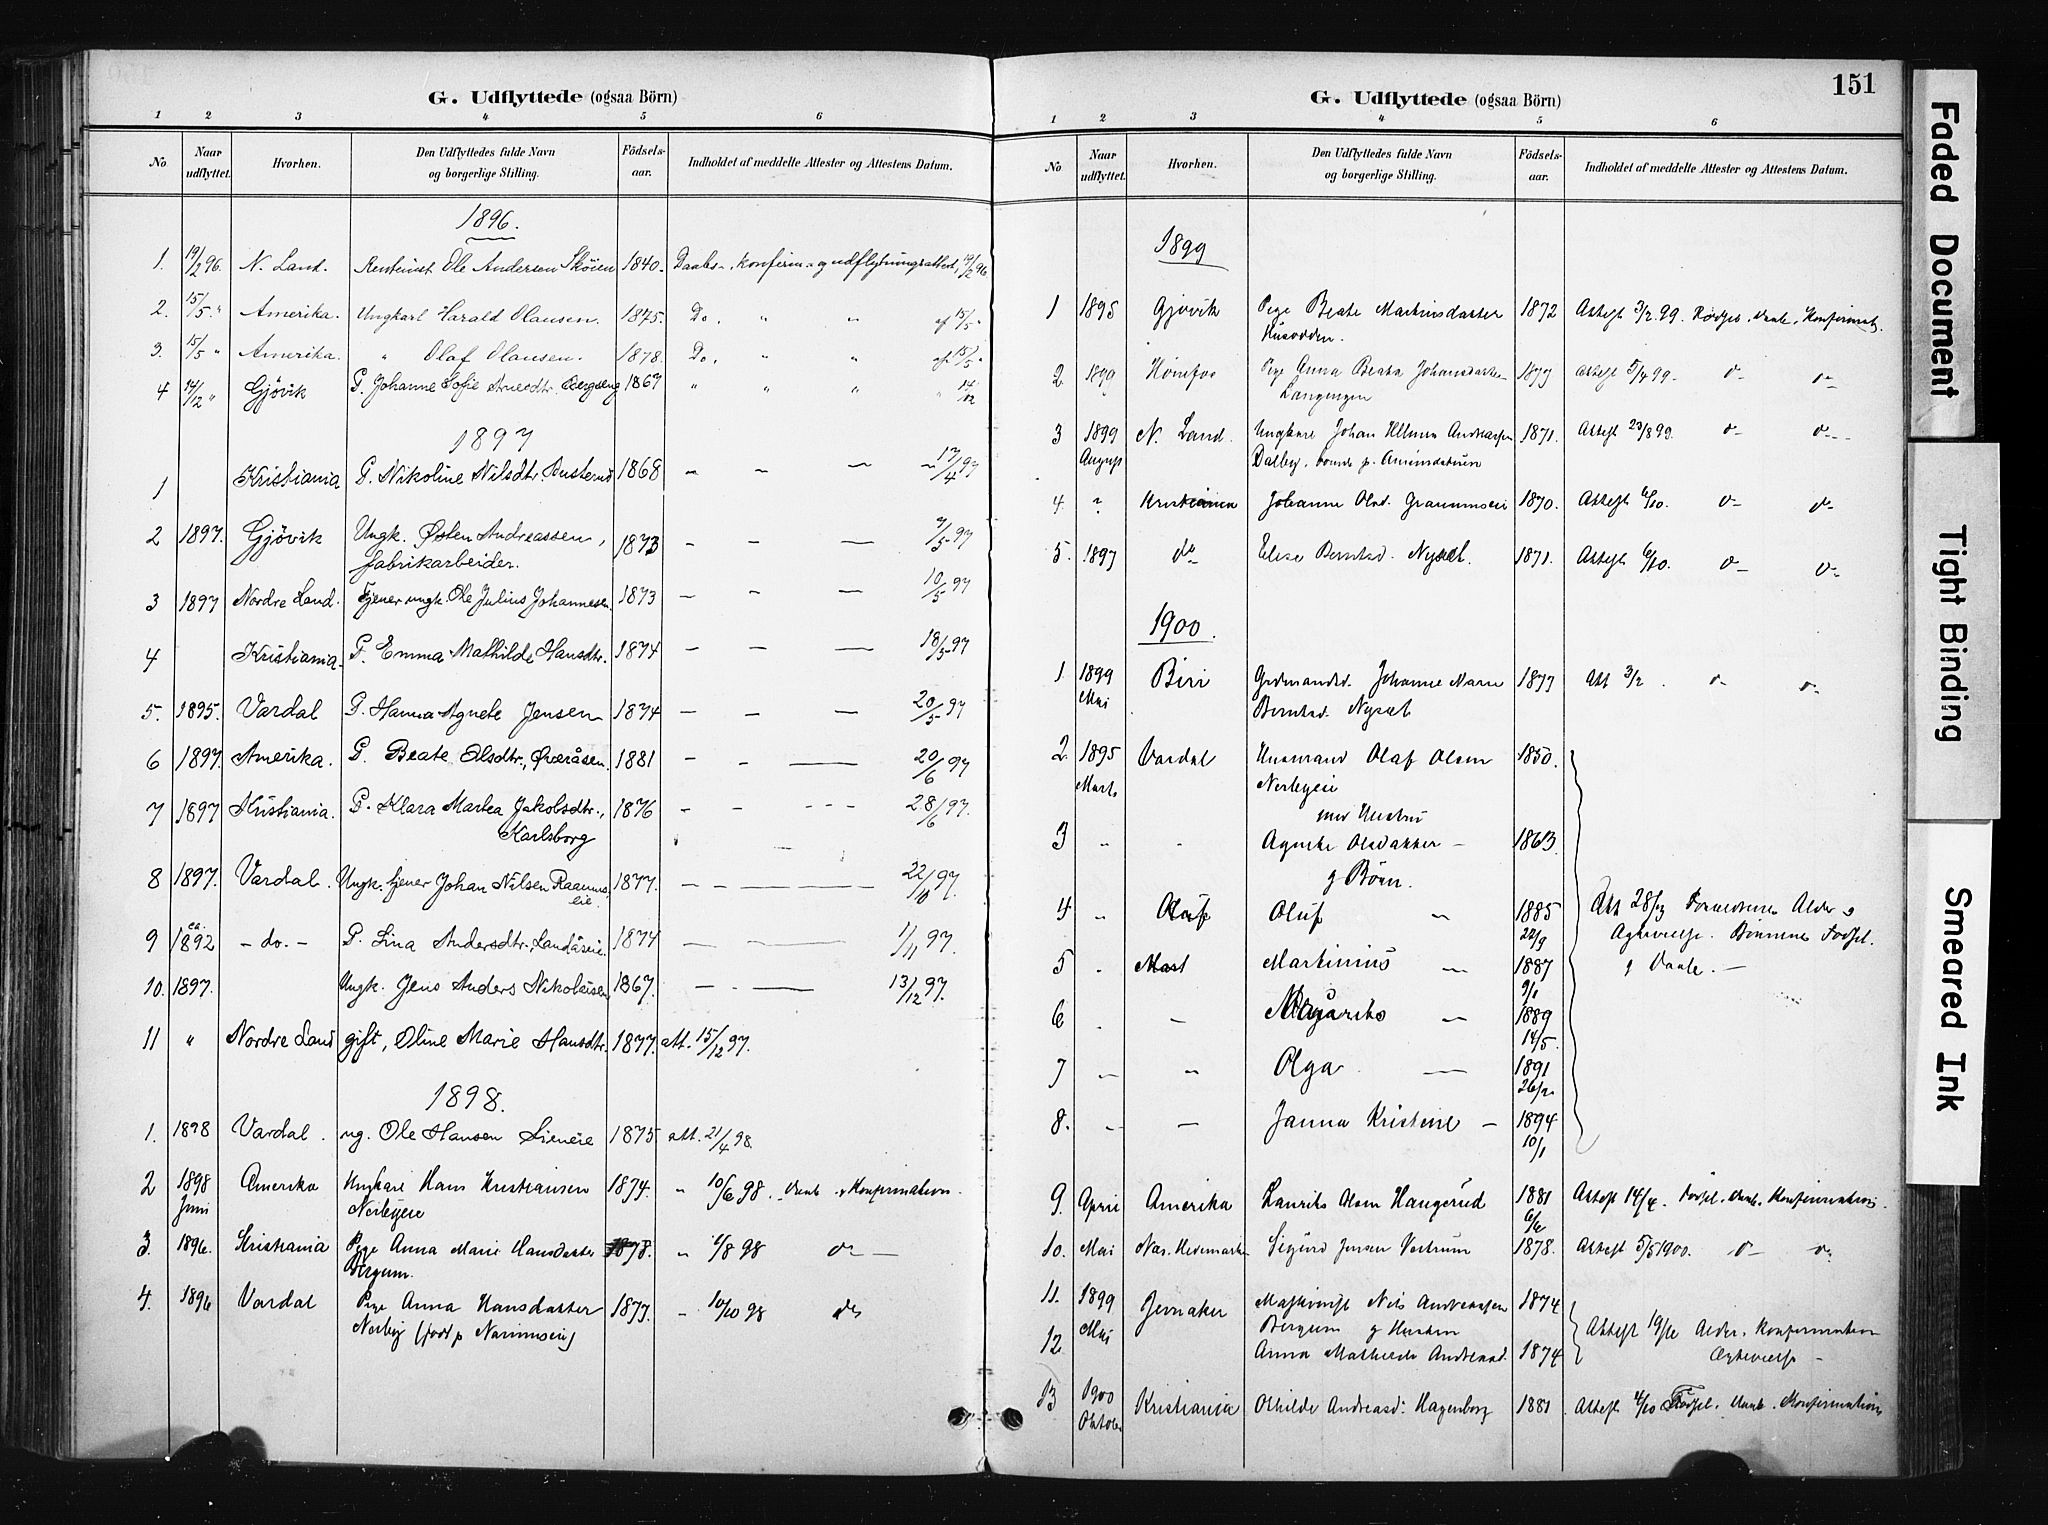 G. Udflyttede (ogsaa Börn)
1 2 3 4 5 6
No Naar udflyttet. Hvorhen. Den Udflyttedes fulde Navn og borgerlige Stilling. Födsels-aar. Indholdet af meddelte Attester og Attestens Datum.
1896.
1. 19/2 96. N. Land. Ole Andersen Sköien 1840. Daabs-, konfirm- og udflytningsattest, 19/2 96
2. 15/5 " Amerika. Ungkarl Harald Olausen. 1875. Do. " " af 15/5 "
3. 15/5 " Amerika. " Olaf Olausen. 1878. Do. " " af 15/5 "
4 14/12 " Gjövik P. Johanne Sofie 1867 " " " " 14/12
1897
1 Kristiania P. Nikoline Nilsdtr. Busterud 1868 - - - - 17/4 97
2 1897. Gjövik Ungk. Østen Andreassen, 1873 - - - 9/5 97
fabrikarbeider.
3 1897 Nordre Land. Tjener ungk. Ole Julius Johannesen. 1873 - - - 10/5 97
4 Kristiania. P. Emma Mathilde Hansdtr. 1874 - - - 18/5 97
5. 1895. Vardal P. Hanna Agnete Jensen 1874 - - - 20/5 97
6 1897. Amerika. P. Beate Olsdtr., Øveråsen. 1881 - - - 20/6 97
7 1897 Kristiania. P. Klara Martea Jakobsdtr., 1876 - - - - - 28/6 97.
Karlsborg
8 1897. Vardal. Ungk. tjener Johan Nilsen Raanums 1877. - - - 22/10 97.
eie.
9 ca. 1892 - do. - P. Lina Andersdtr. Landåseie. 1874 - - - 1/11 97.
10. 1897. Ungk. Jens Anders Nikolaisen 1867. - - - 13/12 97.
11 " Nordre Land gift, Oline Marie Hansdtr. 1877. att. 15/12 97.
1898.
1. 1898 Vardal. ug. Ole Hansen Lieneie 1875 att. 21/4 98.
2 1898 Juni Amerika Ungkarl Hans Kristiansen 1874. " 10/6 98. Daab. Konfirmation.
Nerbyeie
3. 1896. Kristiania Pige Anna Marie Hansdatter 1878. " 6/8 98 do -
Bergum.
4. 1896 Vardal Pige Anna Hansdatter 1877. - 10/10 98 do
Nerby
G. Udflyttede (ogsaa Börn)
151
1 2 3 4 5 6
No Naar udflyttet. Hvorhen. Den Udflyttedes fulde Navn og borgerlige Stilling. Födsels-aar. Indholdet af meddelte Attester og Attestens Datum.
1899
1 1895 Gjövik Pige Beate Martinsdatter 1872 Attest 3/2 99. Födsel. Daab. Konfirmat.
2 1899 Hönefos Pige Anna Beata Johansdatter 1879 Attest 5/4 99. do do
Langengen
3 1899 August N. Land. Ungkarl Johan Hilmar Andreassen 1871. Attest 23/8 99. do do
Dalby,
4. " Kristiania Johanne Olsd. Granumseie 1870. Attest 6/10. do do
5. 1897 do Elise Berntsd. Nysæt. 1871. Attest 6/10. do do
1900.
1. 1899 Mai Biri Johanne Marie 1877 Att 3/2. do do
Berntsd. Nysæt
2 1895 Marts Vardal Husmand Olaf Olsen 1850.
Nerbyeie
med Hustru
3 " " Agnethe Olsdatter - 1863.
g Börn.
4 " Oluf Oluf " 1885 22/9 Att 28/3 Forældrene Alder &
Ægtevielse. Börnenes Födsel.
5 " Mart Martinius " 1887 9/1 g Daab. -
6 " " Margarethe " 1889 14/5.
7 " " Olga - 1891 26/2
8. " " Janna Kristine - 1894 10/1
9. April Amerika Laurits Olsen Haugerud 1881 6/6 Attest 14/4. Födsel. Daab. Konfirmation.
10. Mai Næs. Hedemarken Sigurd Jensen 1878. Attest 5/5 1900. do do
11. 1899 Mai Jevnaker Nils Andreassen 1874
Bergum g Hustru Attest 19/6 Alder. Konfirmation
12. Anna Mathilde Andreasd. 1874 Ægtevielse -
13 1900 Oktober Kristiania Othilde Andreasd. Hagenborg 1881 Attest 4/10 Födsel. Daab. Konfirmation
Faded Document
Tight Binding
Smeared Ink